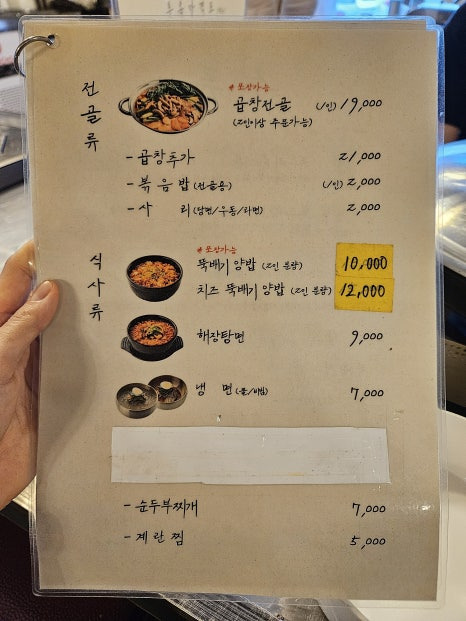 전골류
* 포장가능
곱창전골 (1인) 19,000
(2인이상 주문가능)
- 곱창추가 21,000
- 볶음밥 (전골용) (1인) 2,000
- 사리 (당면/우동/라면) 2,000
식사류
* 포장가능
뚝배기 양밥 (2인 분량) 10,000
치즈 뚝배기 양밥 (2인 분량) 12,000
해장탕면 9,000
냉면 (물/비빔) 7,000
- 순두부찌개 7,000
- 계란찜 5,000